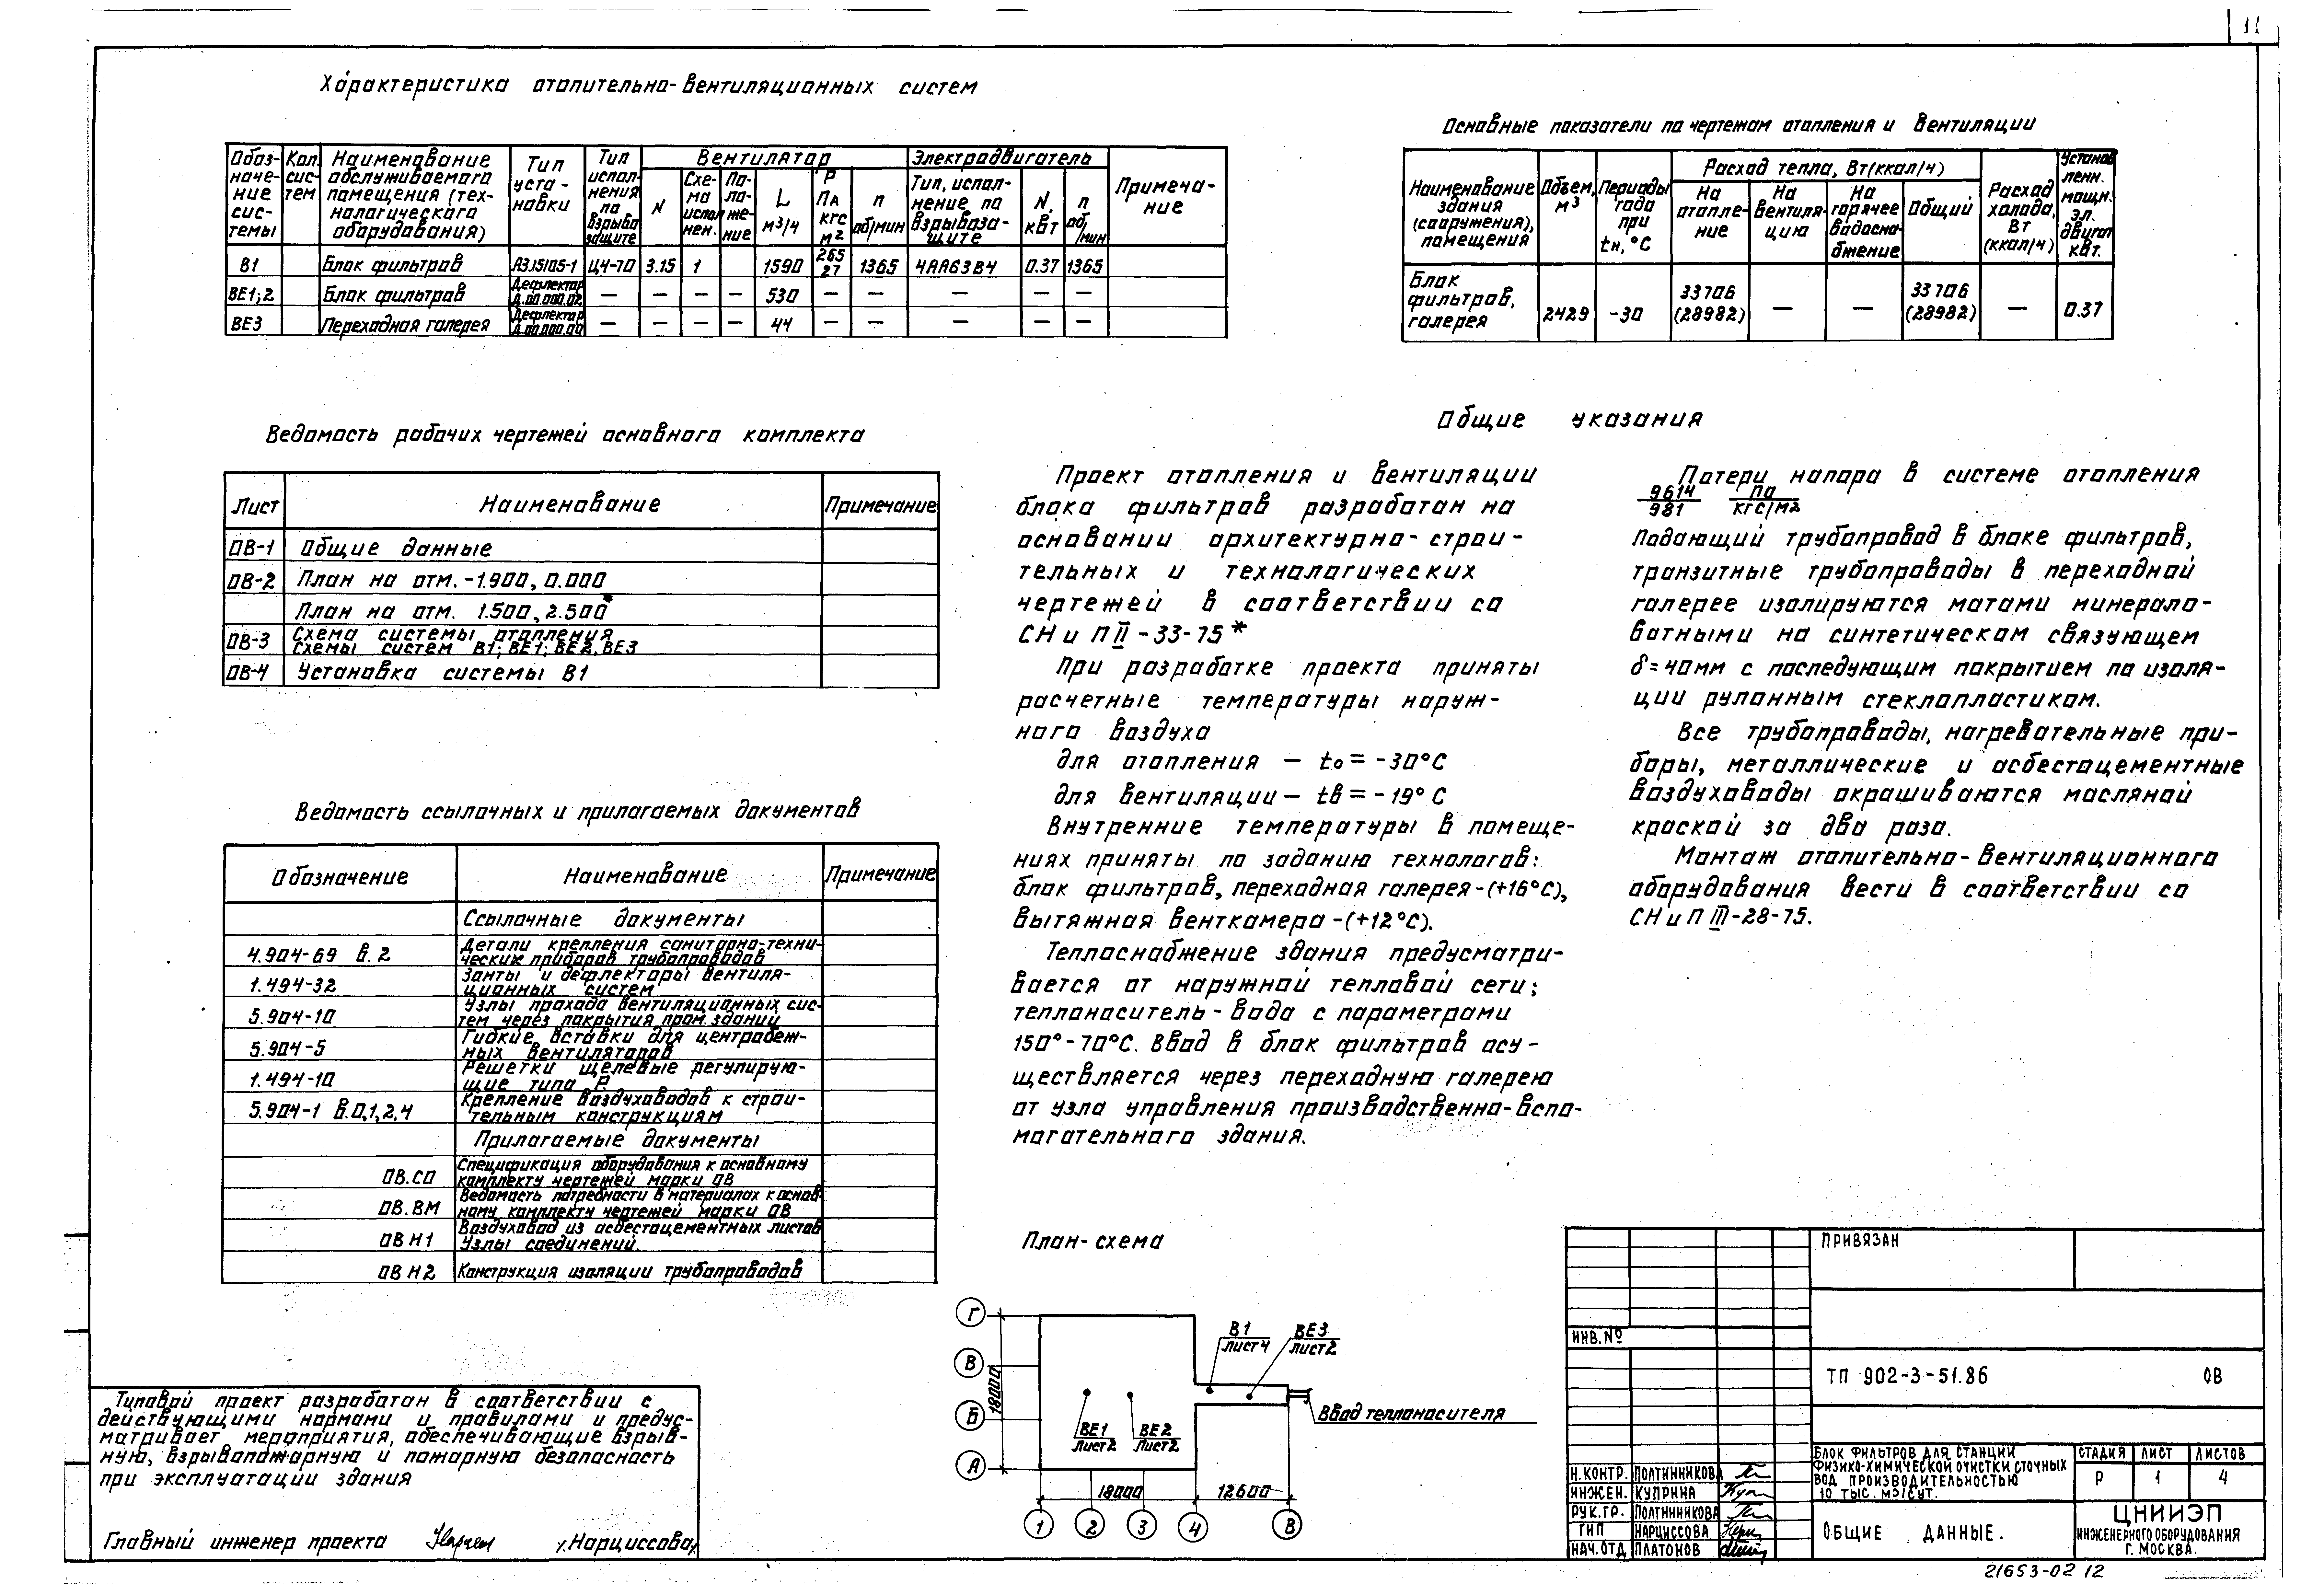 11
Характеристика отопительно-вентиляционных систем
Обоз-
наче-
ние
сис-
темы
Кол.
сис-
тем
Наименование
обслуживаемого
помещения (тех-
нологического
оборудования)
Тип
уста-
новки
Тип
испол-
нения
по
взрыво
защите
Вентилятор
N
Схе-
ма
испол
нен.
По-
ло-
же-
ние
L
м³/ч
P
Па
кгс
м2
n
об/мин
Электродвигатель
Тип, испол-
нение по
взрывоза-
щите
N,
кВт
n
об/
мин
Примеча-
ние
В1 Блок фильтров А3.15105-1 Ц4-70 3.15 1 1590 265 27 1365 4АА63В4 0.37 1365
ВЕ1;2 Блок фильтров Дефлектор Д.00.000.02 — — — — 530 — — — — —
ВЕ3 Переходная галерея Дефлектор Д.00.000.00 — — — — 44 — — — — —
Основные показатели по чертежам отопления и вентиляции
Наименование
здания
(сооружения),
помещения
Объем,
м³
Периоды
года
при
tн,°С
Расход тепла, Вт(ккал/ч)
На
отопле-
ние
На
вентиля-
цию
На
горячее
водосна-
бжение
Общий
Расход
холода,
Вт
(ккал/ч)
Установ
ленн.
мощн.
эл.
двигат
кВт.
Блок
фильтров,
галерея
2429 -30 33706 (28982) — — 33706 (28982) — 0.37
Ведомость рабочих чертежей основного комплекта
Лист Наименование Примечание
ОВ-1 Общие данные
ОВ-2 План на отм.-1.900, 0.000
План на отм. 1.500, 2.500
ОВ-3 Схема системы отопления
Схемы систем В1; ВЕ1; ВЕ2, ВЕ3
ОВ-4 Установка системы В1
Ведомость ссылочных и прилагаемых документов
Обозначение Наименование Примечание
Ссылочные документы
4.904-69 в.2 Детали крепления санитарно-техни-
ческих приборов трубопроводов
1.494-32 Зонты и дефлекторы вентиля-
ционных систем
5.904-10 Узлы прохода вентиляционных сис-
тем через покрытия пром.зданий
5.904-5 Гибкие вставки для центробеж-
ных вентиляторов
1.494-10 Решетки щелевые регулирую-
щие типа Р.
5.904-1 в.0,1,2,4 Крепление воздуховодов к строи-
тельным конструкциям
Прилагаемые документы
ОВ.СО Спецификация оборудования к основному
комплекту чертежей марки ОВ
ОВ.ВМ Ведомость потребности в материалах к основ-
ному комплекту чертежей марки ОВ
ОВ Н1 Воздуховод из асбестоцементных листов
Узлы соединений.
ОВ Н2 Конструкция изоляции трубопроводов
Общие указания
Проект отопления и вентиляции
блока фильтров разработан на
основании архитектурно-строи-
тельных и технологических
чертежей в соответствии со
СНиП II-33-75*
При разработке проекта приняты
расчетные температуры наруж-
ного воздуха
для отопления — tо = -30°С
для вентиляции — tв = -19°С
Внутренние температуры в помеще-
ниях приняты по заданию технологов:
блок фильтров, переходная галерея-(+16°С),
вытяжная венткамера-(+12°С).
Теплоснабжение здания предусматри-
вается от наружной тепловой сети;
теплоноситель-вода с параметрами
150°-70°С. Ввод в блок фильтров осу-
ществляется через переходную галерею
от узла управления производственно-вспо-
могательного здания.
Потери напора в системе отопления
9614 Па
981 кгс/м2
Подающий трубопровод в блоке фильтров,
транзитные трубопроводы в переходной
галерее изолируются матами минерало-
ватными на синтетическом связующем
δ=40мм с последующим покрытием по изоля-
ции рулонным стеклопластиком.
Все трубопроводы, нагревательные при-
боры, металлические и асбестоцементные
воздуховоды окрашиваются масляной
краской за два раза.
Монтаж отопительно-вентиляционного
оборудования вести в соответствии со
СНиП III-28-75.
План-схема
Г
В
Б
А
18000
В1
лист4
ВЕ3
лист2
ВЕ1
лист2
ВЕ2
лист2
Ввод теплоносителя
18000 12600
1 2 3 4 В
Типовой проект разработан в соответствии с
действующими нормами и правилами и предус-
матривает мероприятия, обеспечивающие взрыв-
ную, взрывопожарную и пожарную безопасность
при эксплуатации здания
Главный инженер проекта /Нарциссова/
ПРИВЯЗАН
ИНВ.№
ТП 902-3-51.86 ОВ
БЛОК ФИЛЬТРОВ ДЛЯ СТАНЦИИ
ФИЗИКО-ХИМИЧЕСКОЙ ОЧИСТКИ СТОЧНЫХ
ВОД ПРОИЗВОДИТЕЛЬНОСТЬЮ
10 ТЫС. М3/СУТ.
СТАДИЯ ЛИСТ ЛИСТОВ
Р 1 4
Н.КОНТР. ПОЛТИННИКОВА
ИНЖЕН. КУПРИНА
РУК.ГР. ПОЛТИННИКОВА
ГИП НАРЦИССОВА
НАЧ.ОТД ПЛАТОНОВ
ОБЩИЕ ДАННЫЕ.
ЦНИИЭП
ИНЖЕНЕРНОГО ОБОРУДОВАНИЯ
Г. МОСКВА.
21653-02 12